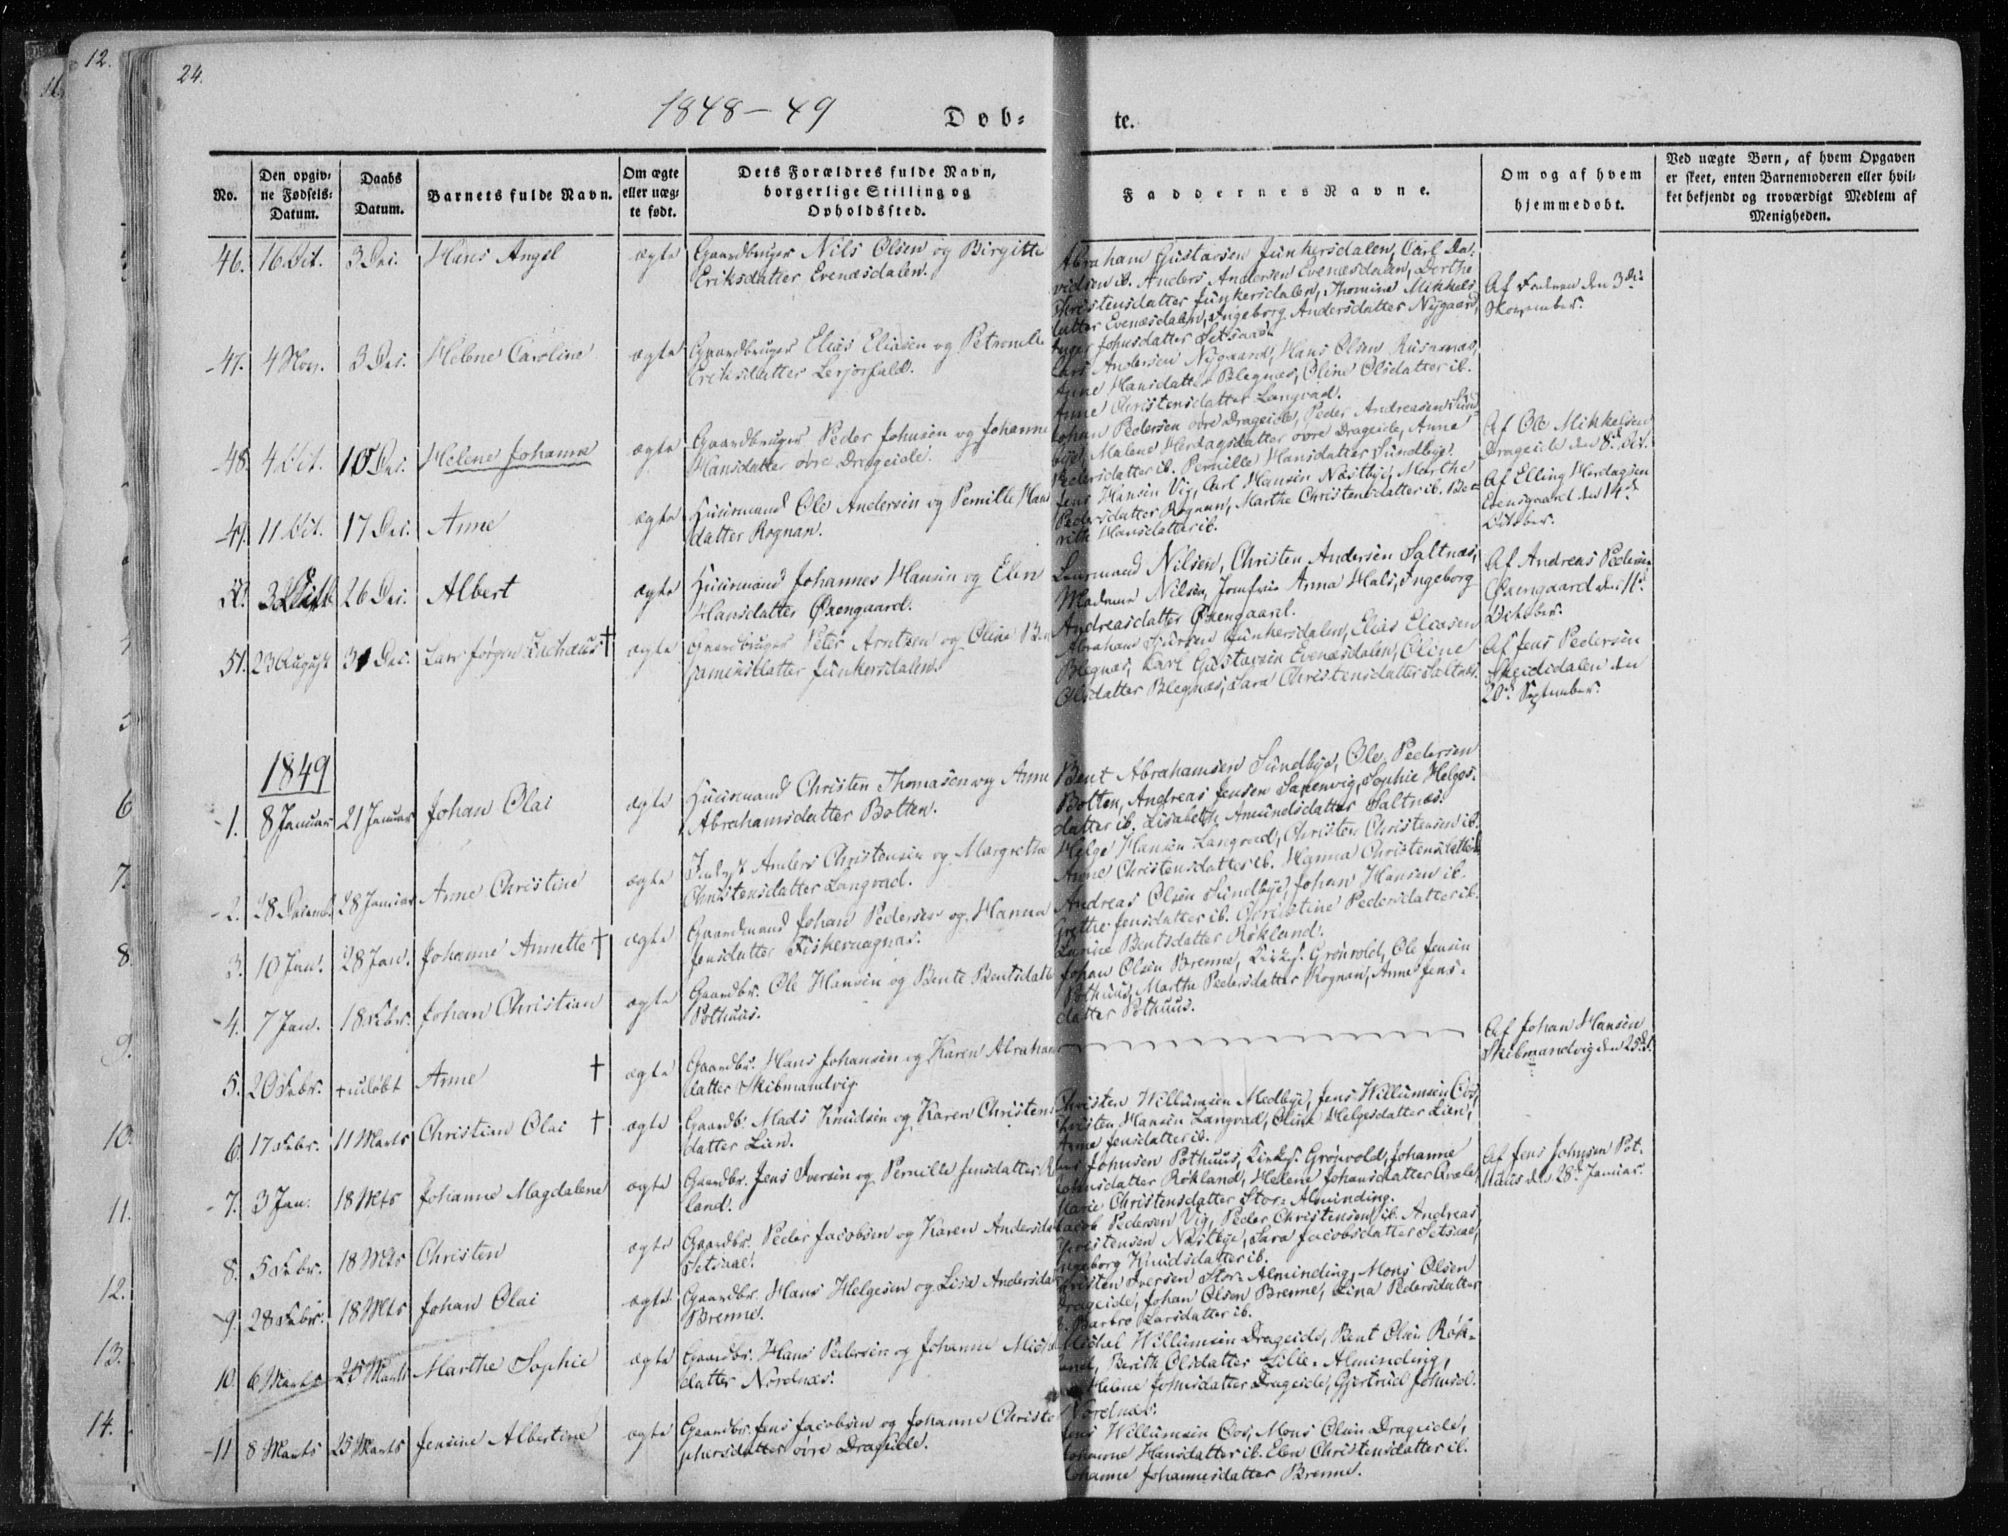 12.
24.
1848-49
Døb=
te.
No.
Den opgiv=
ne Fødsels=
Datum.
Daabs
Datum.
Barnets fulde Navn.
Om ægte
eller uæg=
te født.
Dets Forældres fulde Navn,
borgerlige Stilling og
Opholdssted.
Faddernes Navne.
Om og af hvem
hjemmedøbt.
Ved uægte Børn, af hvem Opgaven
er skeet, enten Barnemoderen eller hvil=
ket bekjendt og troværdigt Medlem af
Menigheden.
46. 16 Oct. 3 Dec. Hans Angel ægte Gaardbruger Nils Olsen og Birgitte
Eriksdatter Evenæsdalen.
Abraham Gustavsen Junkersdalen, Carl Da=
vidsen ib. Anders Andersen Evenæsdalen, Dorthe
Christensdatter Junkersdalen, Thomine Mikkels
datter Evenæsdalen, Ingeborg Andersdatter Nygaard,
Inger Johnsdatter Setsaae.
Af Faderen den 3die
November.
47. 4 Nov. 3 Dec. Helene Caroline ægte Gaardbruger Elias Eliasen og Petronelle
Eriksdatter Lerjorfald.
Lars Andersen Nygaard, Hans Olsen Rusaanæs,
Anne Hansdatter Blegnæs, Oline Olsdatter ib.
Anne Christensdatter Langvad.
48. 4 Oct. 10 Dec. Helene Johanna ægte Gaardbruger Peder Johnsen og Johanne
Hansdatter øvre Drageide.
Johan Pedersen øvre Drageide, Peder Andreasen Sund
bye, Malene Herdagsdatter øvre Drageide, Anne
Pedersdatter ib. Pernille Hansdatter Sundbye.
Af Ole Mikkelsen
Drageide den 8de Oct.
49. 11 Oct. 17 Dec. Anne ægte Huusmand Ole Andersen og Pernille Hans
datter Rognan.
Jens Hansen Vig, Carl Hansen Næstbye, Marthe
Pedersdatter Rognan, Marthe Christensdatter ib. Be=
rith Hansdatter ib.
Af Elling Herdagsen
Evensgaard den 14de
October.
50. 26 Dec. Albert ægte Huusmand Johannes Hansen og Elen
Hansdatter Øxengaard.
Leenmand Nilsen, Christen Andersen Saltnæs,
Madame Nilsen, Jomfrue Anna Hals, Ingeborg
Andreasdatter Øxengaard.
Af Andreas Pedersen
Øxengaard den 11te
October.
51. 23 August 31 Dec. Lars Jørgen Zachæus † ægte Gaardbruger Peter Arntzen og Oline Ben
jaminsdatter Junkersdalen.
Abraham Sjursen Junkersdalen, Elias Eliasen
Blegnæs, Carl Gustavsen Evenæsdalen, Oline
Olsdatter Blegnæs, Sara Christensdatter Saltnæs.
Af Jens Pedersen
Skeididalen den
20de September.
1849
1. 8 Januar 21 Januar Johan Olai ægte Huusmand Christen Thomasen og Anne
Abrahamsdatter Botten.
Bent Abrahamsen Sundbye, Ole Pedersen
Botten, Andreas Jensen Saxenvig, Sophie Helges=
datter ib. Lisabeth Amundsdatter Saltnæs.
2. 28 Decemb. 28 Januar Anne Christine ægte Inderst Anders Christensen og Margrethe
Christensdatter Langvad.
Helge Hansen Langvad, Christen Christensen ib.
Anne Christensdatter ib. Hanna Christensdatter ib.
3. 10 Jan. 28 Jan. Johanne Annette † ægte Gaardmand Johan Pedersen og Hanna
Jensdatter Fiskervagnæs.
Andreas Olsen Sundbye, Johan Hansen ib.
Grethe Jensdatter ib. Christine Pedersdatter ib.
Lunice Bentsdatter Røkland.
4. 7 Jan. 18 Febr. Johan Christian ægte Gaardbr. Ole Hansen og Bente Bentsdatter
Pothuus.
Johan Olsen Brenne, Kirks. Grønvold, Ole Jensen
Pothuus, Marthe Pedersdatter Rognan, Anne Jens=
datter Pothuus.
5. 20 Febr. + udøbt Anne † ægte Gaardbr. Hans Johansen og Karen Abrahams
datter Skibmandvig
Af Johan Hansen
Skibmandvig den 25de
6. 17 Febr. 11 Marts Christian Olai † ægte Gaardb. Mads Knudsen og Karen Christens
datter Lien.
Christen Willumsen Medbye, Jens Willumsen Oos,
Christen Hansen Langvad, Oline Helgesdatter Lien,
Anne Jensdatter ib.
7. 3 Jan. 18 Mts Johanne Magdalene ægte Gaardbr. Jens Iversen og Pernille Jensdatter Røk
land.
Jens Johnsen Pothuus, Kirks. Grønvold, Johanne
Johnsdatter Røkland, Helene Johansdatter Qvale,
Marie Christensdatter Stor=Alminding.
Af Jens Johnsen Pot=
huus den 28de Januar.
8. 5 Febr. 18 Mts Christen ægte Gaardbr. Peder Jacobsen og Karen Andersdatter
Setsaae.
Jacob Pedersen Vig, Peder Christensen ib. Andreas
Christensen Næstbye, Sara Jacobsdatter Setsaae,
Ingeborg Knudsdatter ib.
9. 28 Febr. 18 Mts Johan Olai ægte Gaardbr. Hans Helgesen og Lisa Andersdatter
Brenne.
Christen Iversen Stor=Alminding, Mons Olsen
Drageide, Johan Olsen Brenne, Lina Pedersdatter
ib. Barbro Larsdatter ib.
10. 6 Marts 25 Marts Marthe Sophie ægte Gaardbr. Hans Pedersen og Johanne Michels
datter Nordnæs.
Michal Willumsen Drageide, Bent Olsen Røk=
land, Berith Olsdatter Lille=Alminding,
Helene Johnsdatter Drageide, Gjertrud Johnsd.
Nordnæs.
11 8 Marts 25 Marts Jensine Albertine ægte Gaardbr. Jens Jacobsen og Johanne Christo
phersdatter øvre Drageide.
Jens Willumsen Oos, Mons Olsen Drageide,
Johanne Hansdatter ib. Elen Christensdatter ib.
Johanne Johannesdatter Brenne.
6
7.
8.
9.
10.
11.
12.
13.
14.